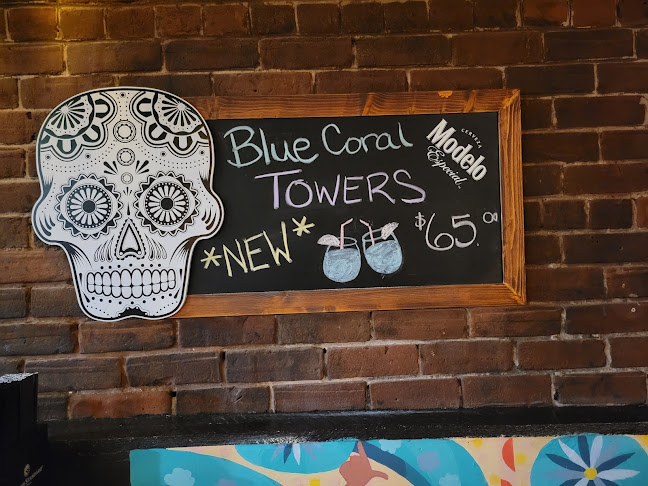 Blue Coral
Towers
*NEW*
$65.00
CERVEZA
Modelo
Especial